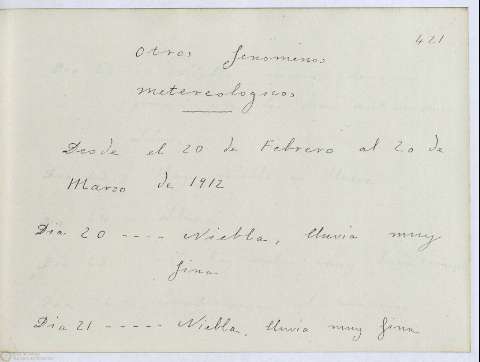 421
Otros fenomenos
metereologicos
Desde el 20 de Febrero al 20 de
Marzo de 1912
Dia 20 ---- Niebla, lluvia muy
fina
Dia 21 ----- Niebla, lluvia muy fina